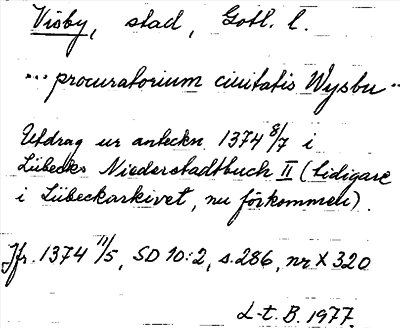 Visby, stad, Gotl. l.
... procuratorium civitatis Wysbu ...
Utdrag ur anteckn. 1374 8/7 i
Lübecks Niederstadtbuch II (tidigare
i Lübeckarkivet, nu förkommen).
Jfr. 1374 11/5, SD 10:2, s. 286, nr X 320
L-t. B. 1977.